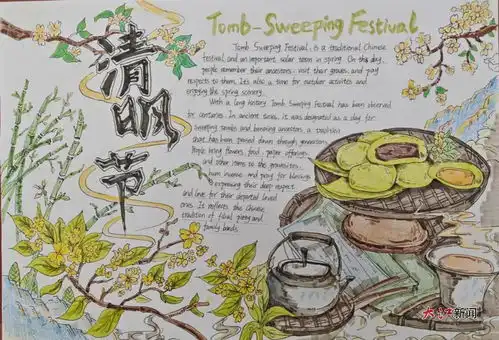 Tomb-Sweeping Festival
清明节
Tomb Sweeping Festival is a traditional Chinese
festival and an important solar term in spring. On this day,
people remember their ancestors, visit their graves, and pay
respects to them. It's also a time for outdoor activities and
enjoying the spring scenery.
With a long history Tomb Sweeping Festival has been observed
for centuries. In ancient times, it was designated as a day for
sweeping tombs and honoring ancestors, a tradition
that has been passed down through generations.
People bring flowers, food, paper offerings,
and other items to the gravesites,
burn incense and pray for blessings
expressing their deep respect
and love for their departed loved
ones. It reflects the Chinese
tradition of filial piety and
family bonds.
大江新闻